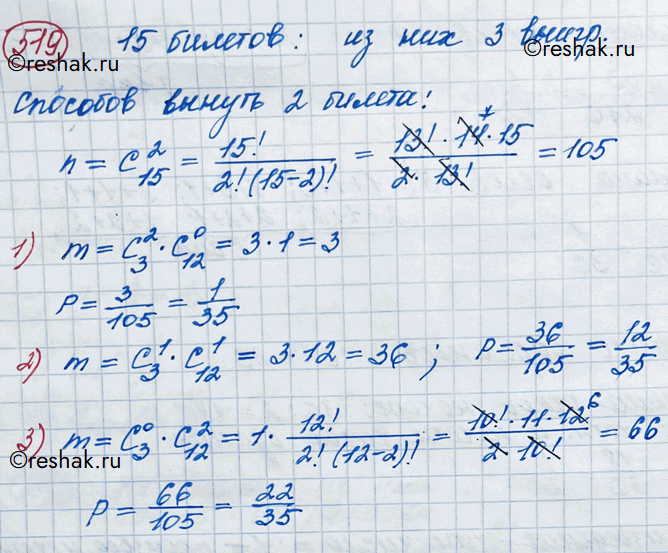 519 15 билетов: из них 3 выигр.
©reshak.ru ©reshak.ru
Способов вынуть 2 билета:
n = C²₁₅ = 15!/(2!(15-2)!) = (13! · 14⁷ · 15)/(2 · 13!) = 105
1) m = C²₃ · C⁰₁₂ = 3 · 1 = 3
P = 3/105 = 1/35
2) m = C¹₃ · C¹₁₂ = 3 · 12 = 36 ; P = 36/105 = 12/35
3) m = C⁰₃ · C²₁₂ = 1 · 12!/(2!(12-2)!) = (10! · 11 · 12⁶)/(2 · 10!) = 66
©reshak.ru ©reshak.ru
P = 66/105 = 22/35